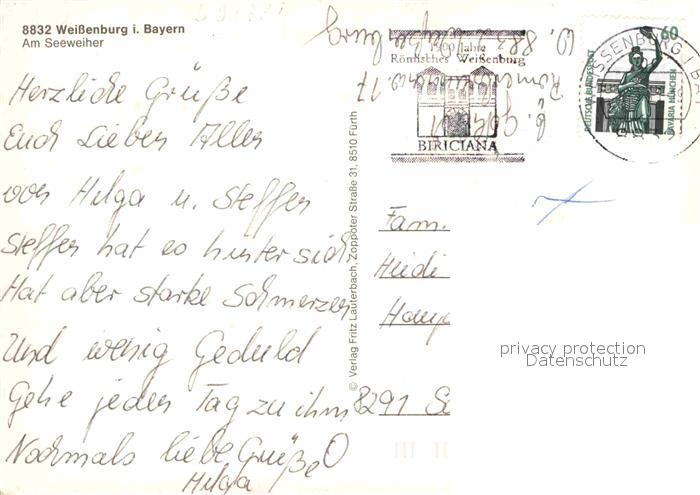 8832 Weißenburg i. Bayern
Am Seeweiher
Herzliche Grüße
Euch Lieben Allen
von Helga u. Steffen
Steffen hat es hinter sich
Hat aber starke Schmerzen
Und wenig Geduld
Gehe jeden Tag zu ihm
Nochmals liebe Grüße
Helga
© Verlag Fritz Lauterbach, Zoppoter Straße 31, 8510 Fürth
1900 Jahre
Römisches Weißenburg
BIRICIANA
60
DEUTSCHE BUNDESPOST
BAVARIA MÜNCHEN
WEISSENBURG I BAY
Fam.
Heidi
8291
privacy protection
Datenschutz